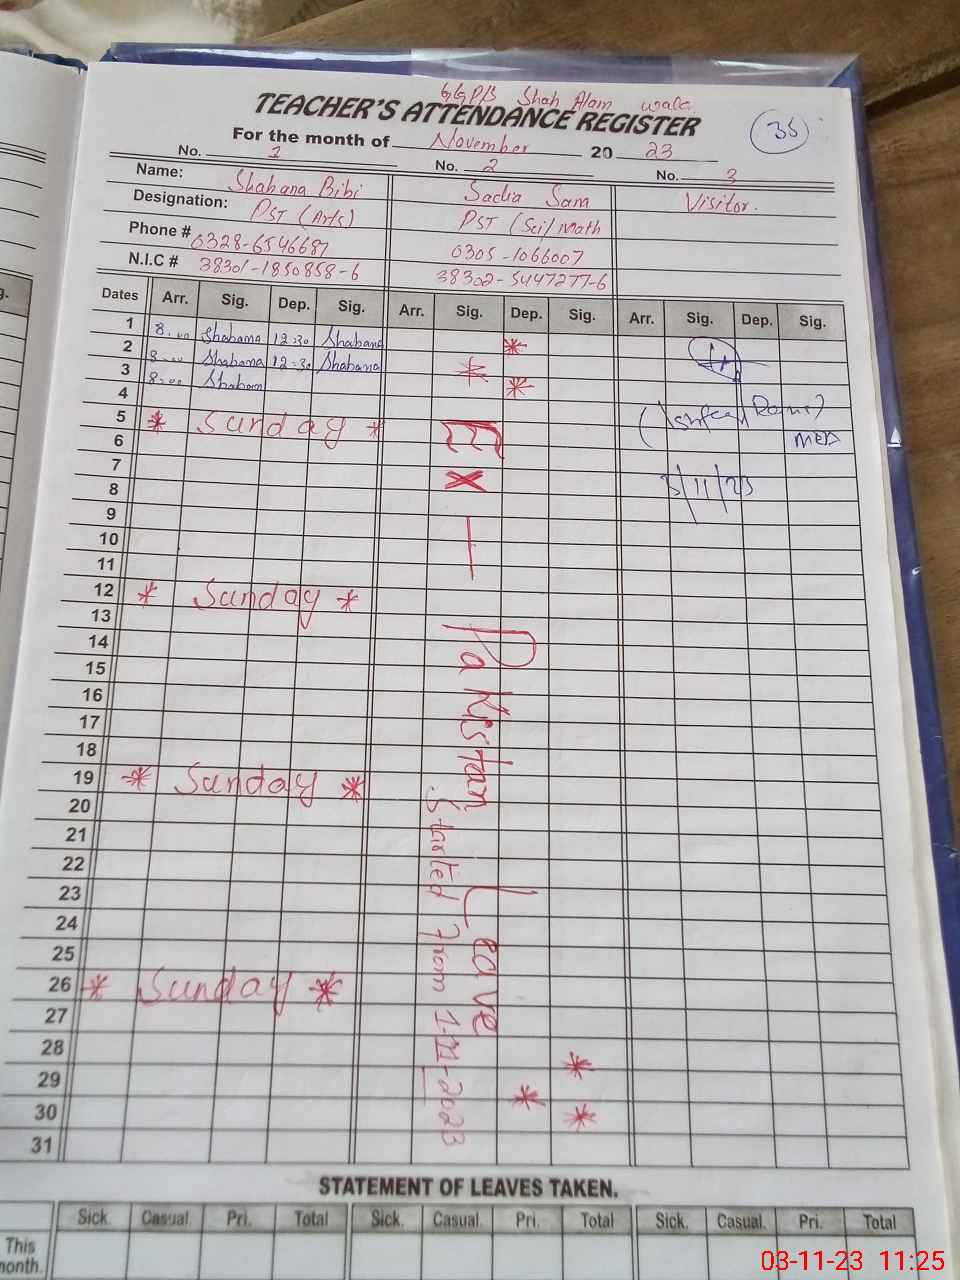 GGPS Shah Alam wala
TEACHER'S ATTENDANCE REGISTER
35
For the month of November 20 23
No. 1 No. 2 No. 3
Name: Shabana Bibi Sadia Sam Visitor.
Designation: PST (Arts) PST (Sci/Math
Phone # 0328-6546687 0305-1066007
N.I.C # 38301-1850858-6 38302-5447277-6
Dates Arr. Sig. Dep. Sig. Arr. Sig. Dep. Sig. Arr. Sig. Dep. Sig.
1 8:00 Shabana 12:30 Shabana
2 8:00 Shabana 12:30 Shabana
3 8:00 Shabana
4
5 * Sunday *
6 MEA
7
8 3/11/23
9
10
11
12 * Sunday *
13
14
15
16
17
18
19 * Sunday *
20
21
22
23
24
25
26 * Sunday *
27
28
29
30
31
Ex - Pakistan Leave
Started From 1-11-2023
STATEMENT OF LEAVES TAKEN.
Sick. Casual. Pri. Total Sick. Casual. Pri. Total Sick. Casual. Pri. Total
This
month.
03-11-23 11:25